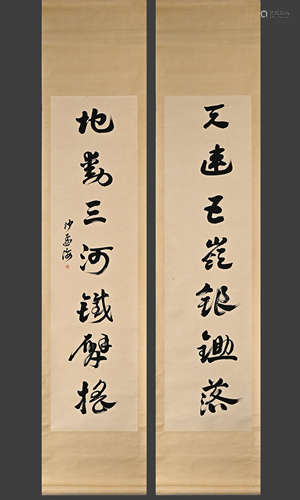 天連五嶺銀鋤落
地動三河鐵臂搖
沙孟海